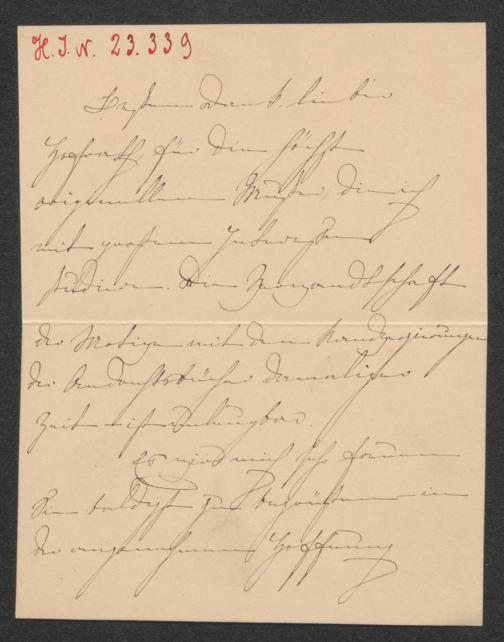 H. I. N. 23.339
Besten Dank, lieber
Hofrath, für die höchst
originellen Muster, die ich
mit großem Interesse
studiere. Die Verwandtschaft
der Motive mit den Randverzierungen
der Andachtsbücher damaliger
Zeit ist unläugbar.
Es wird mich sehr freuen
Sie baldigst zu begrüßen in
der angenehmen Hoffnung